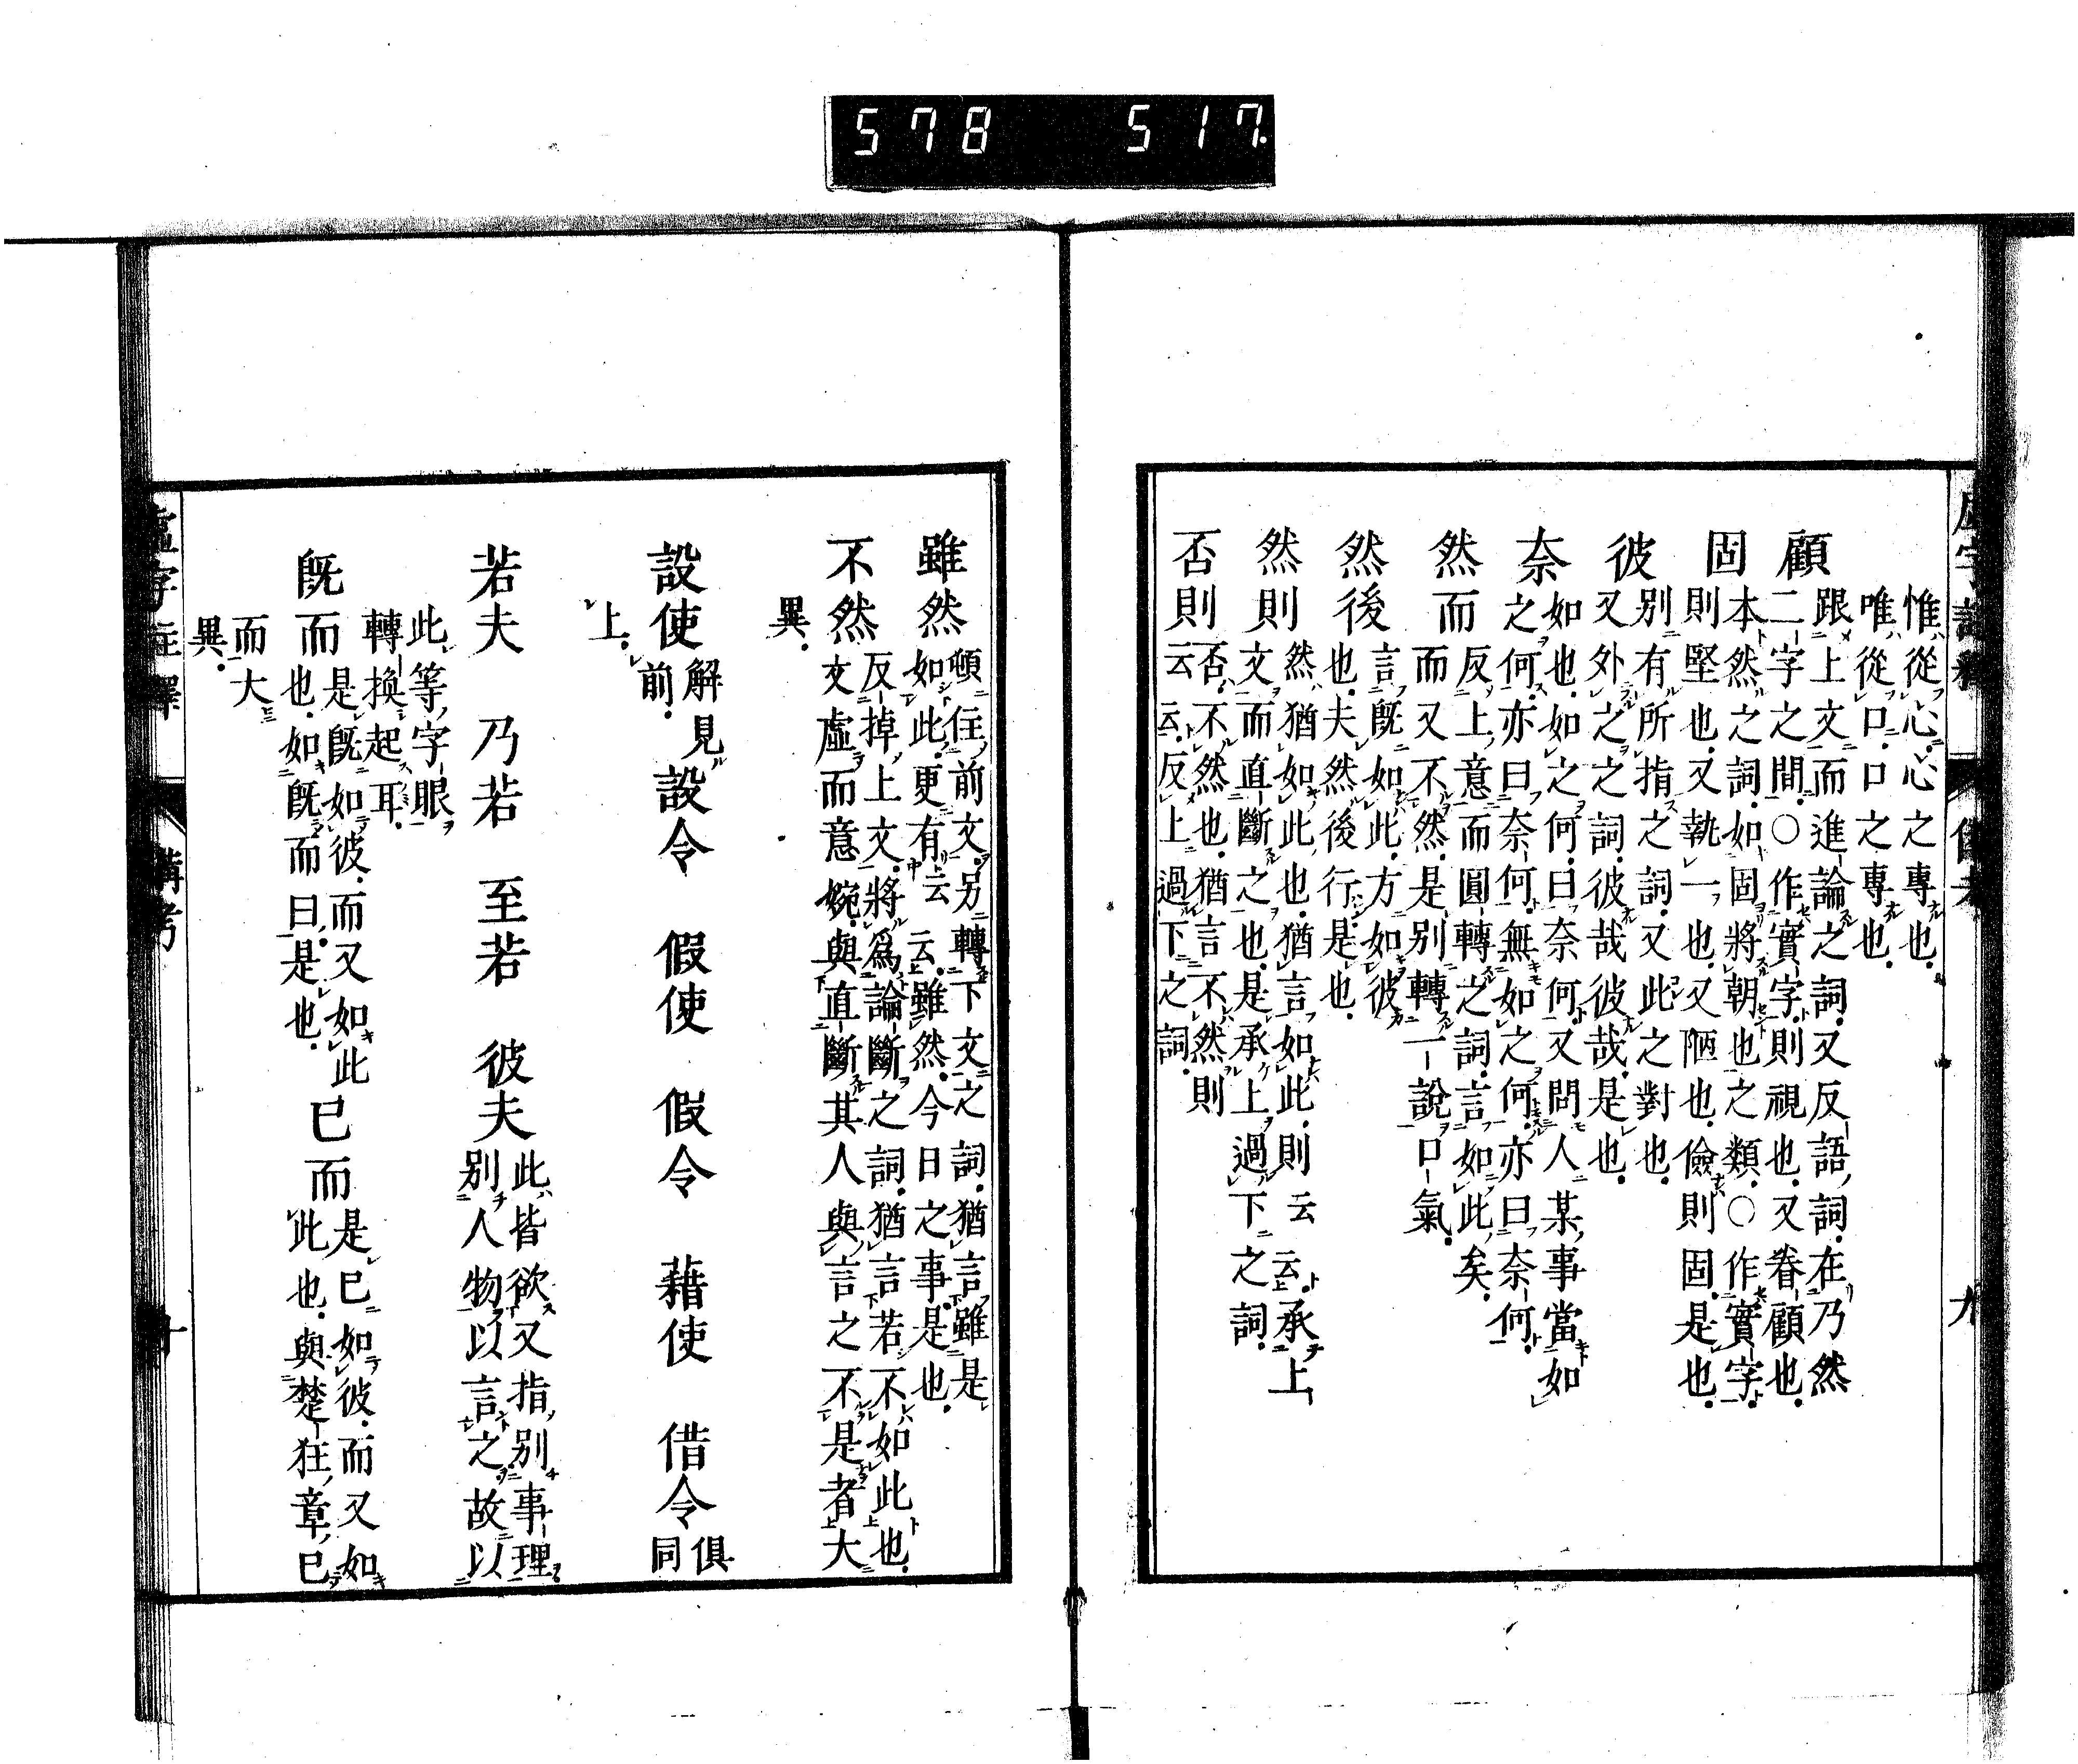 578 517.
惟從心心之專也.
唯從口口之專也.
顧
跟上文而進論之詞.又反語詞.在乃然
二字之間.○作實字則視也.又眷顧也.
固
本然之詞.如固將朝也之類.○作實字.
則堅也.又執一也.又陋也.儉則固是也.
彼
別有所指之詞.又此之對也.
又外之之詞.彼哉彼哉是也.
奈
如也.如之何.曰奈何.又問人某事當如
之何.亦曰奈何.無如之何.亦曰奈何.
然而
反上意而圓轉之詞.言如此矣.
而又不然.是別轉一說口氣.
然後
言既如此.方如彼
也.夫然後行是也.
然則
然猶如此也.猶言如此.則云云.承上
文而直斷之也.是承上過下之詞.
否則
否不然也.猶言不然則
云云.反上過下之詞.
雖然
頓住前文.另轉下文之詞.猶言雖是
如此.更有云云.雖然.今日之事是也.
不然
反掉上文.將爲論斷之詞.猶言若不如此也.
文虛而意婉.與直斷其人與言之不是者大
異.
設使
解見
前.
設令 假使 假令 藉使 借令
俱
同
上.
若夫 乃若 至若 彼夫
此皆欲又指別事理
別人物以言之.故以
此等字眼
轉換起耳.
既而
是既如彼.而又如此
也.如既而曰.是也.
已而
是已如彼.而又如
此也.與楚狂章已
而大
異.
虛字註釋 備考 九
虛字註釋 備考 十